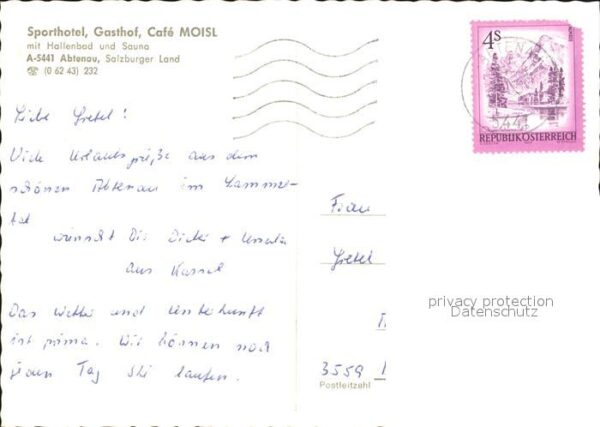 Sporthotel, Gasthof, Café MOISL
mit Hallenbad und Sauna
A-5441 Abtenau, Salzburger Land
☎ (0 62 43) 232
4S
REPUBLIK ÖSTERREICH
Liebe Gretel!
Viele Urlaubsgrüße aus dem
schönen Abtenau im Lammer-
tal
wünscht Dir Dieter + Ursula
aus Kassel
Das Wetter und Unterkunft
ist prima. Wir können noch
jeden Tag Ski laufen.
Frau
Gretel
3559
Postleitzahl
privacy protection
Datenschutz